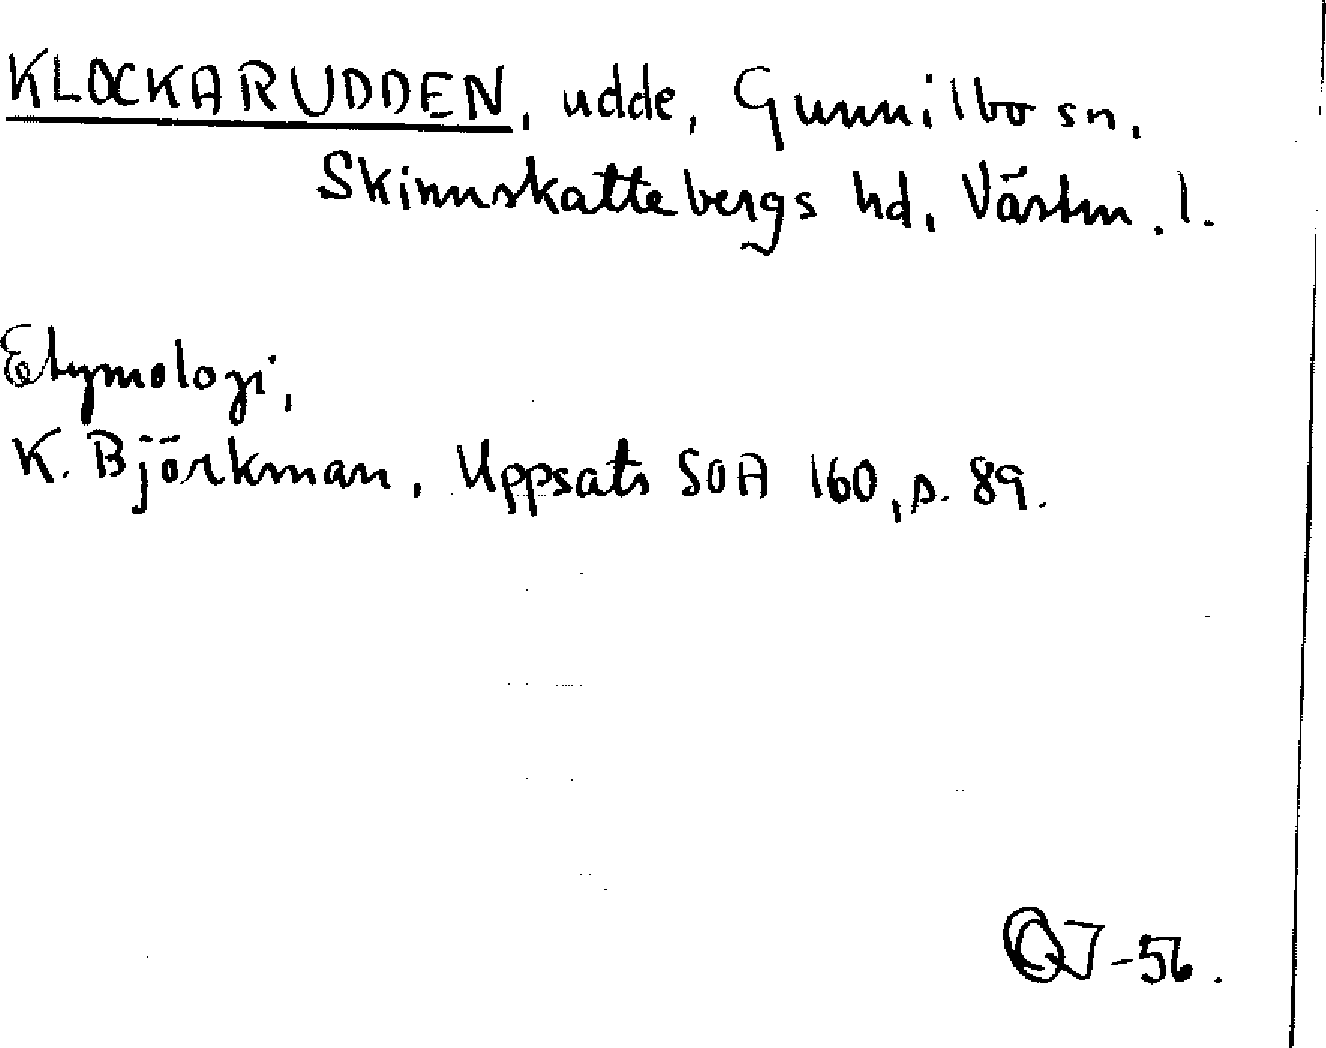 KLOCKARUDDEN, udde, Gunnilbo sn,
Skinnskattebergs hd, Västm. l.
Etymologi,
K. Björkman, Uppsats SOA 160, s. 89.
-56.